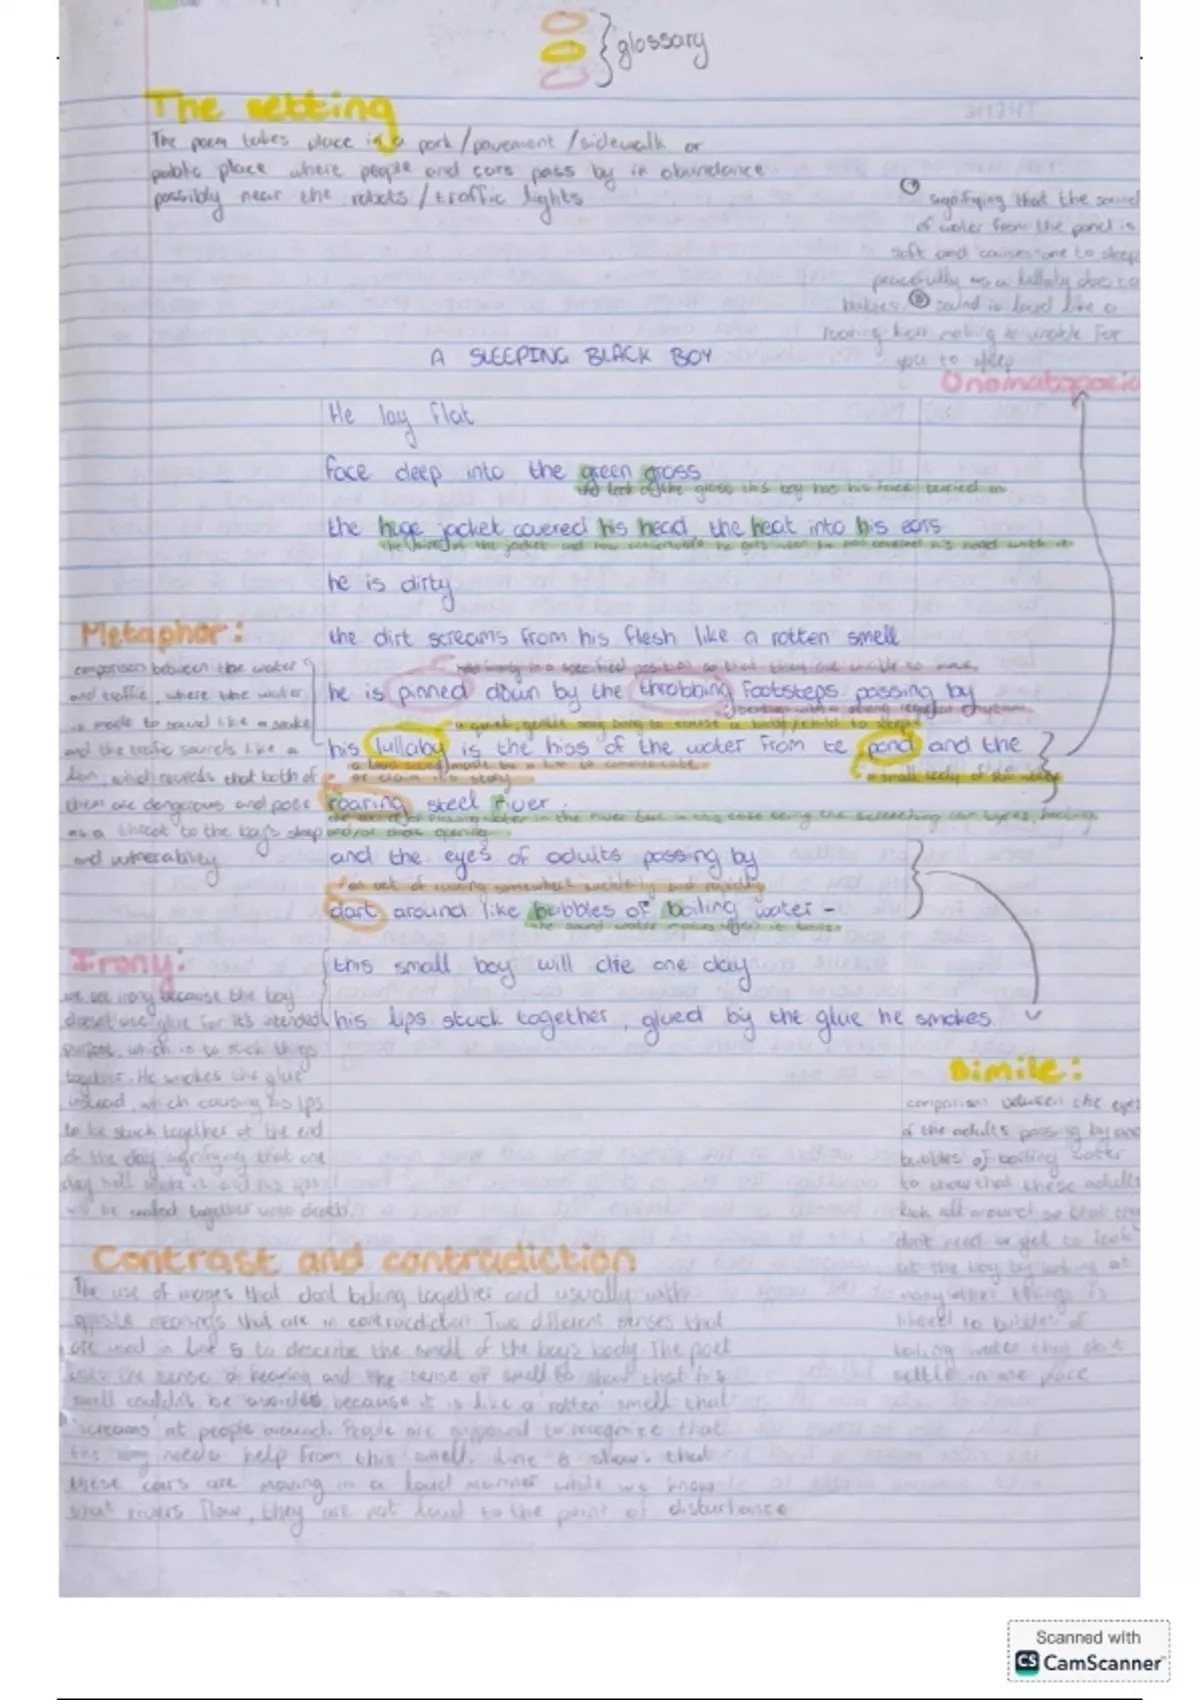 glossary
The setting
The poem takes place in a park/pavement/sidewalk or
public place where people and cars pass by in abundance
possibly near the robots/traffic lights
signifying that the sound
of water from the pond is
soft and causes one to sleep
peacefully as a lullaby does to
babies. sound is loud like a
roaring lion making it unable for
you to sleep
A SLEEPING BLACK BOY
Onomatopoeia
He lay flat
face deep into the green grass
the look of the grass this boy has his face buried in
the huge jacket covered his head the heat into his ears
he is dirty
Metaphor:
the dirt screams from his flesh like a rotten smell
comparison between the water
and traffic, where the water
is made to sound like a snake
and the traffic sounds like a
lion, which reveals that both of
them are dangerous and pose
as a threat to the boy's sleep
and vulnerability
in a specified position so that they are unable to move
he is pinned down by the throbbing footsteps passing by
beating with a strong regular rhythm
a quiet, gentle song sung to cause a baby/child to sleep
his lullaby is the hiss of the water from te pond and the
a loud sound made by a lion to communicate
or claim its
a small body of still water
roaring steel river.
the sound of passing water in the river but in this case being the screeching car tyres, hooting
and/or doors opening
and the eyes of adults passing by
an act of running somewhere suddenly and rapidly
dart around like bubbles of boiling water -
the sound water makes when it boils
Irony:
this small boy will die one day
his lips stuck together, glued by the glue he smokes.
we see irony because the boy
doesn't use glue for its intended
purpose, which is to stick things
together. He smokes the glue
instead, which causing his lips
to be stuck together at the end
of the day signifying that one
day he'll smoke it and his lips
will be sealed together unto death.
Simile:
comparison between the eyes
of the adults passing by and
bubbles of boiling water
to show that these adults
look all around so that they
don't need to look
at the boy by looking at
many other things is
liked to bubbles of
boiling water that don't
settle in one place
Contrast and contradiction
The use of images that dont belong together and usually with
opposite meanings that are in contradiction. Two different senses that
are used in line 5 to describe the smell of the boys body. The poet
uses the sense of hearing and the sense of smell to show that his
smell couldn't be avoided because it is like a 'rotten' smell that
'screams' at people around. People are supposed to recognize that
the boy needs help from this smell. Line 8 shows that
these cars are moving in a loud manner while we know
what rivers flow, they are not loud to the point of disturbance
Scanned with
CS CamScanner